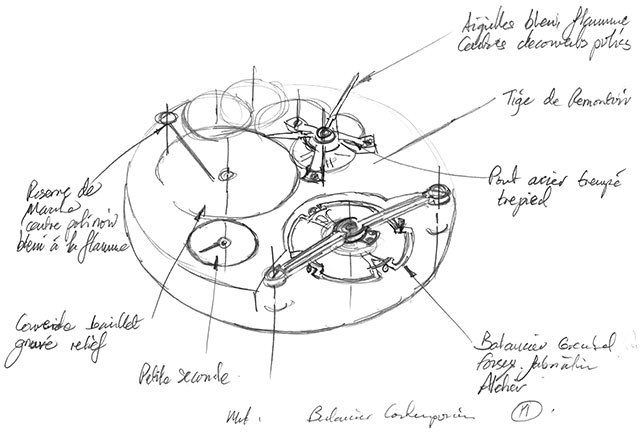 Aiguilles bleui flamme
Centres decouverts polies
Tige de Remontoir
Pont acier trempé
trepied
Reserve de
Marche
centre poli noir
bleui à la flamme
Couvercle barillet
gravée relief
Petite seconde
Balancier Greubel
Forsey fabrication
Atelier
Mvt. Balancier Contemporain M.